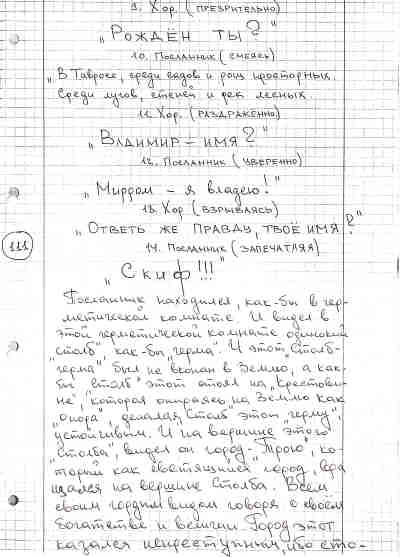 9. Хор. (презрительно)
„Рождён ты?"
10. Посланник (смеясь)
„В Тавросе, среди садов и рощ просторных.
Среди лугов, степей и рек лесных.
11. Хор. (раздраженно)
„Владимир – имя?"
12. Посланник (уверенно)
„Мирром – я владею!"
13. Хор (взрываясь)
„Ответь же правду, твоё имя?"
111
14. Посланник (запечатляя)
„Скиф!!!"
Посланник находился, как-бы в гер-
метической комнате. И видел в
этой герметической комнате одинокий
„столб" как-бы „герма". И этот „Столб-
герма", был не вкопан в Землю, а как-
бы „столб" этот стоял на „крестови-
не", которая опираясь на Землю как
„опора", делала „Столб" этот „герму",
устойчивым. И на вершине „этого
Столба", видел он город „Трою", ко-
торый как светящийся город,
щался на вершине Столба. Всем
своим гордым видом говоря о своём
богатстве и величии. Город этот
казался неприступным ибо сто-